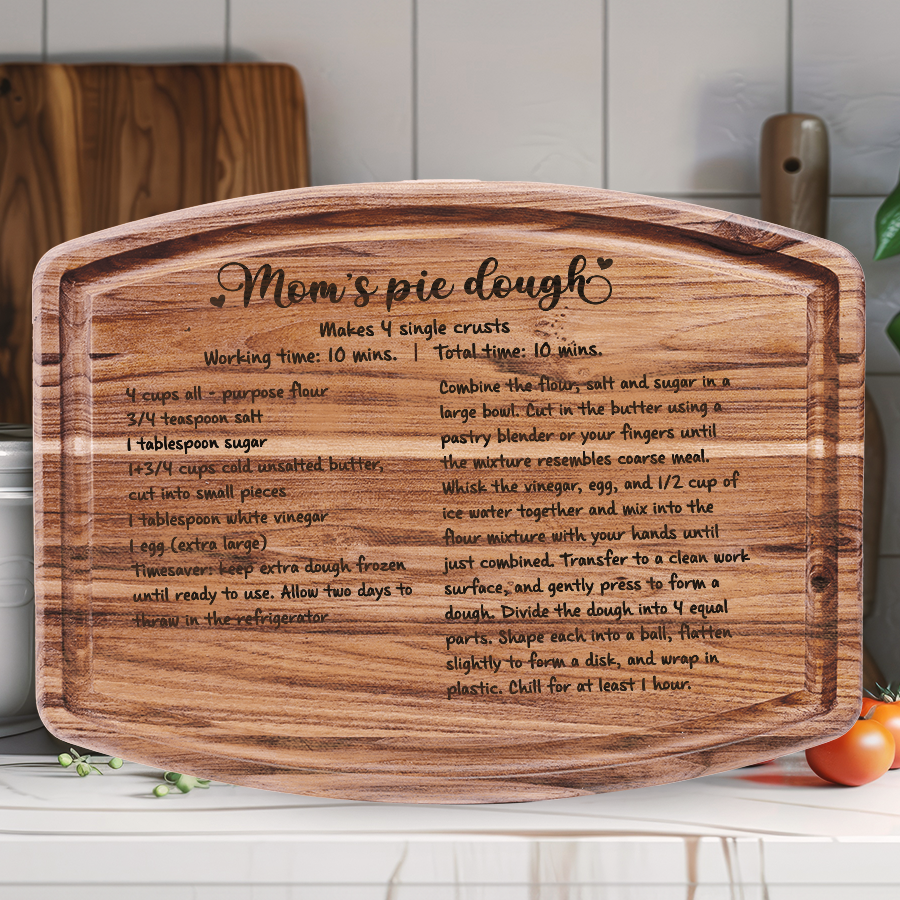 Mom's pie dough
Makes 4 single crusts
Working time: 10 mins. | Total time: 10 mins.
4 cups all - purpose flour
3/4 teaspoon salt
1 tablespoon sugar
1+3/4 cups cold unsalted butter,
cut into small pieces
1 tablespoon white vinegar
1 egg (extra large)
Timesaver: keep extra dough frozen
until ready to use. Allow two days to
thraw in the refrigerator
Combine the flour, salt and sugar in a
large bowl. Cut in the butter using a
pastry blender or your fingers until
the mixture resembles coarse meal.
Whisk the vinegar, egg, and 1/2 cup of
ice water together and mix into the
flour mixture with your hands until
just combined. Transfer to a clean work
surface, and gently press to form a
dough. Divide the dough into 4 equal
parts. Shape each into a ball, flatten
slightly to form a disk, and wrap in
plastic. Chill for at least 1 hour.